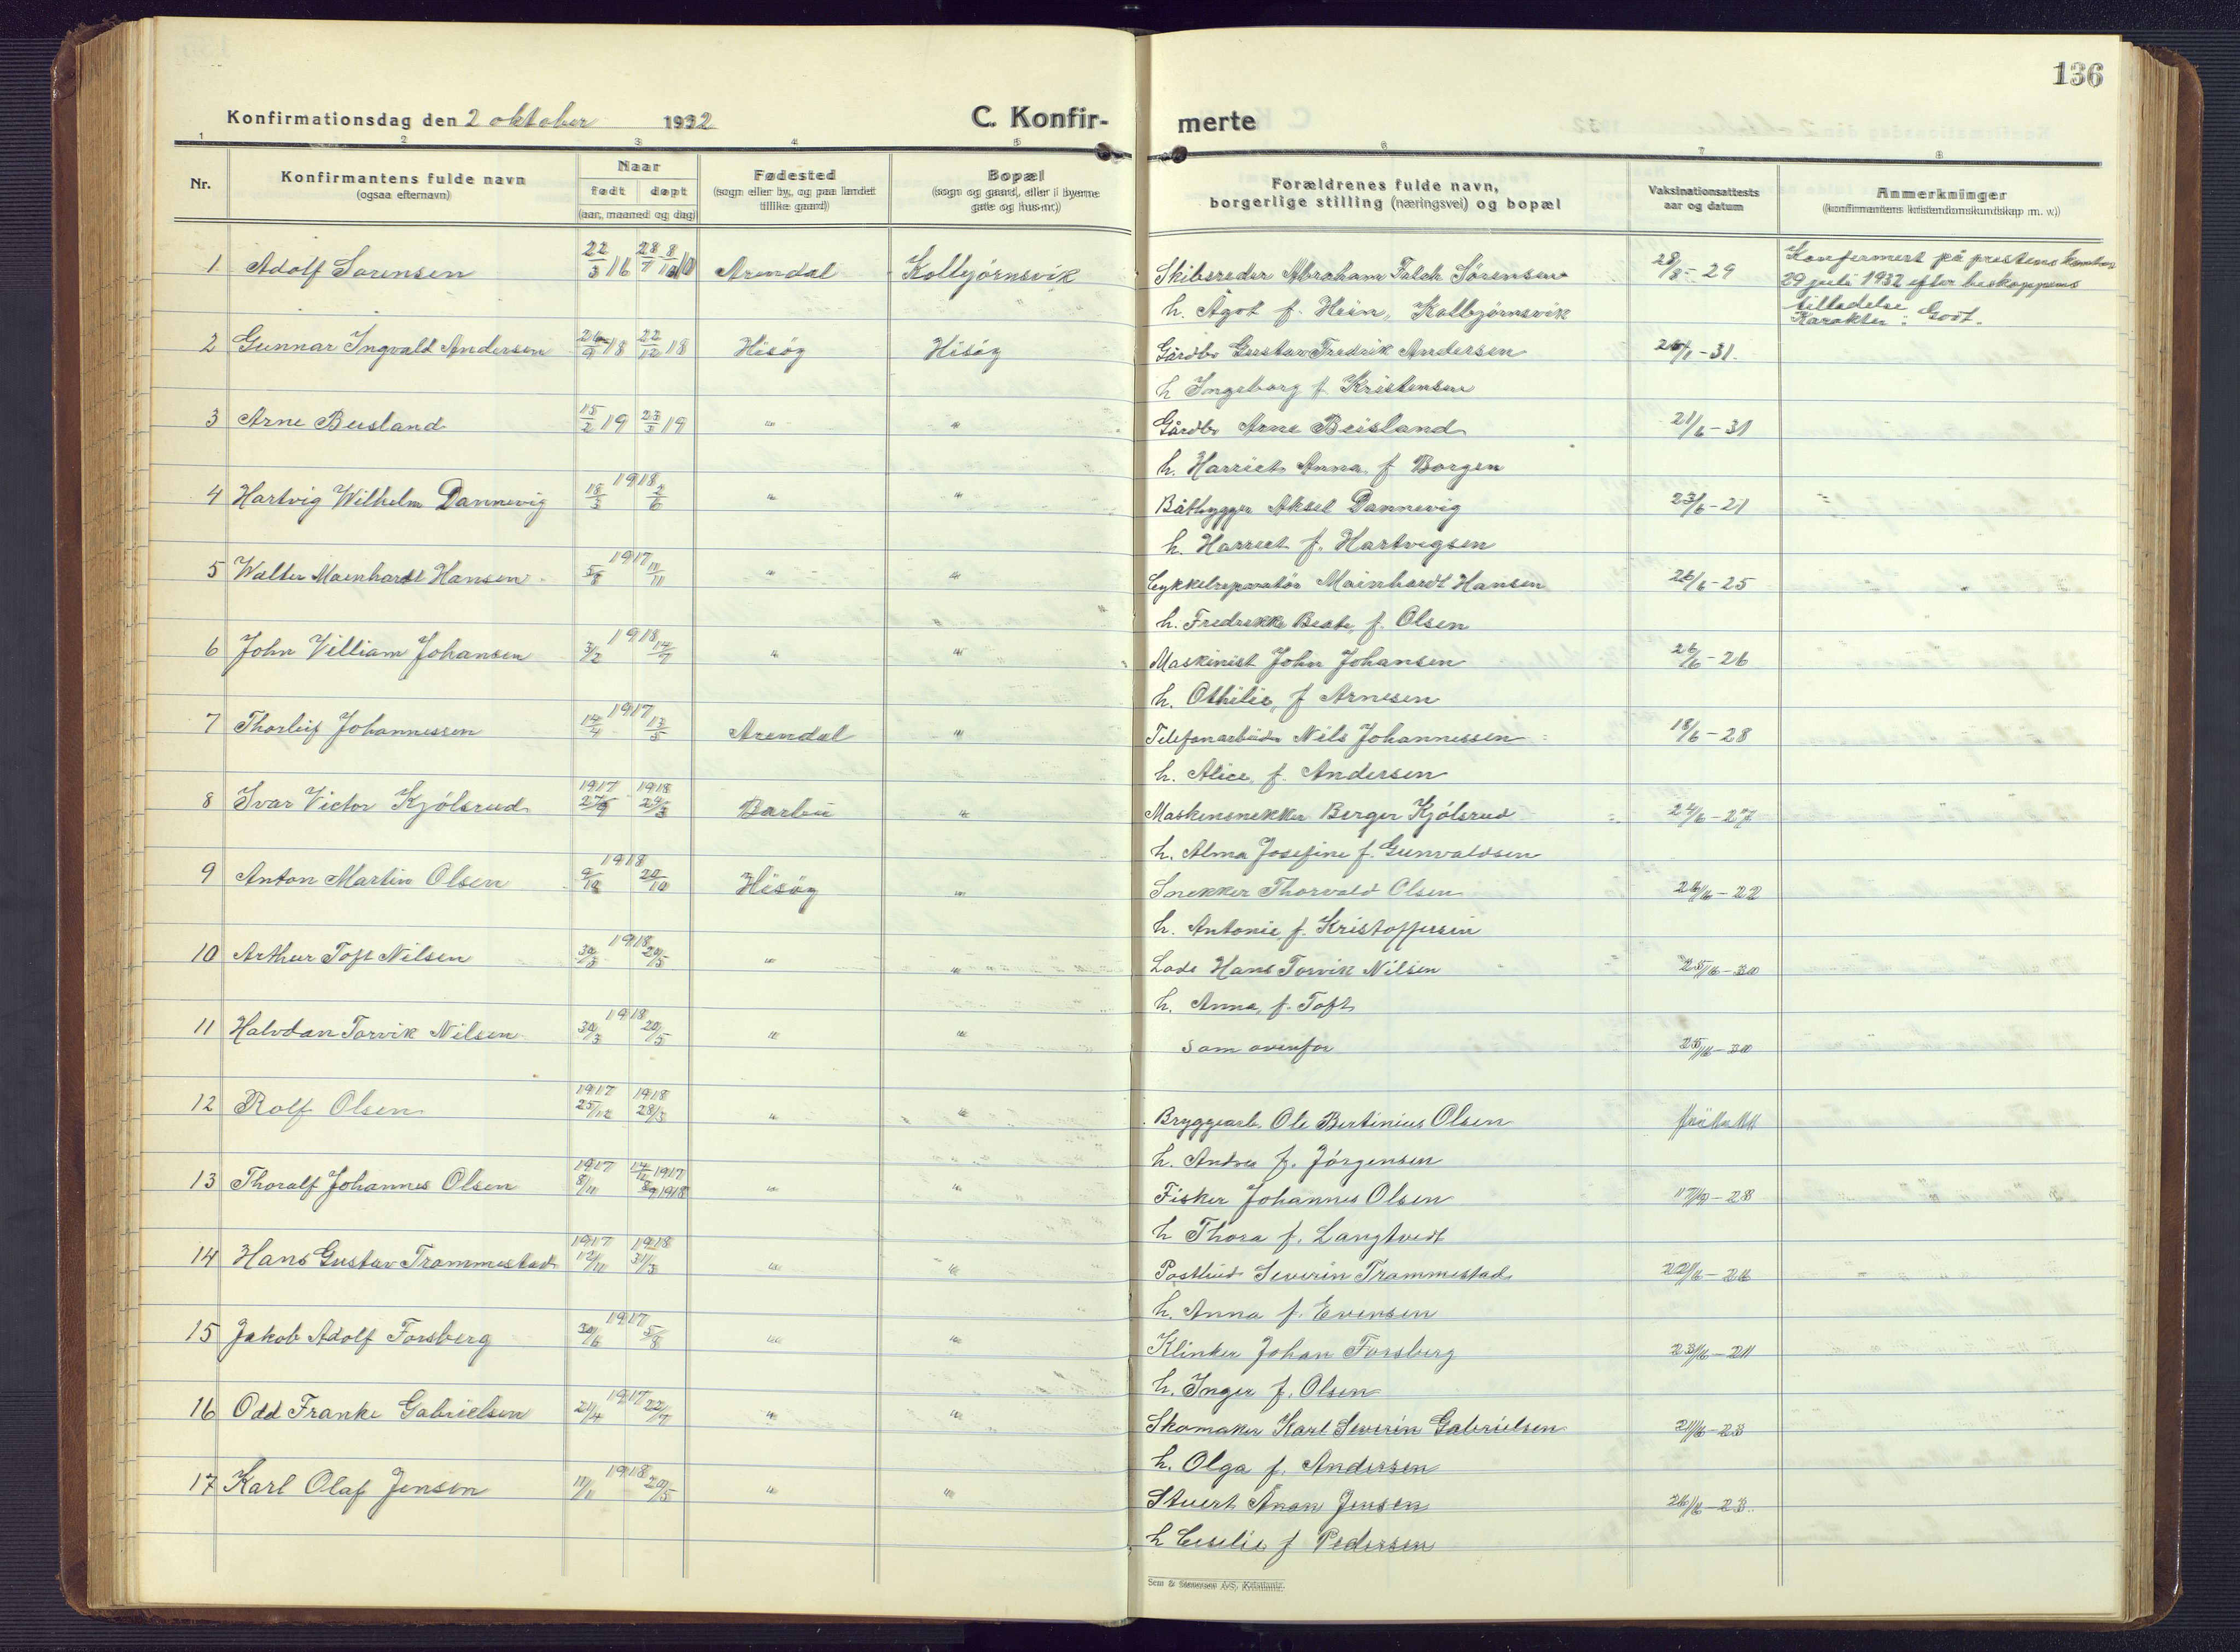 136
Konfirmationsdag den 2 oktober 1932
C. Konfir-
merte
1 2 3 4 5 6 7 8
Nr.
Konfirmantens fulde navn
(ogsaa efternavn)
Naar
født døpt
(aar, maaned og dag)
Fødested
(sogn eller by, og paa landet
tillike gaard)
Bopæl
(sogn og gaard, eller i byerne
gate og hus-nr.)
Forældrenes fulde navn,
borgerlige stilling (næringsvei) og bopæl
Vaksinationsattests
aar og datum
Anmerkninger
(konfirmantens kristendomskundskap m. v.)
1 Adolf Sørensen 22/3 16 Arendal Kolbjørnsvik Skibsreder Abraham Falck Sørensen 28/8 - 29 Konfermert på prestens kontor
29 juli 1932 efter biskoppens
h. Ågot f. Hein, Kolbjørnsvik tilladelse
Karakter: Godt.
2 Gunnar Ingvald Andersen 26/9 18 22/12 18 Hisøy Hisøy Gårdbr Gustav Fredrik Andersen 26/1 - 31.
h Ingeborg f Kristensen
3 Arne Beisland 15/2 19 23/3 19 " " Gårdbr Arne Beisland 21/6 - 31
h. Harriet Anna f Borgen
4 Hartvig Wilhelm Dannevig 18/3 1918 2/6 " " Båtbygger Aksel Dannevig 23/6 - 21
h. Harriet f. Hartvigsen
5 Walter Mainhardt Hansen 5/8 1917 11/11 " " Cykkelreparatör Mainhardt Hansen 26/6 - 25
h. Fredrikke Beate, f. Olsen
6 John Villiam Johansen 3/2 1918 14/7 " " Maskinist John Johansen 26/6 - 26
h. Othilie, f Arnesen
7 Thorleif Johannessen 14/4 1917 13/5 Arendal " Telefonarbeider Nils Johannessen 18/6 - 28
h. Alice, f. Andersen
8 Ivar Victor Kjölsrud 1917 27/9 1918 29/3 Barbu " Maskinsnekker Berger Kjölsrud 24/6 - 27
h. Alma Josefine f. Gunvaldsen
9 Anton Martin Olsen 9/10 1918 20/10 Hisøy " Snekker Thorvald Olsen 26/6 - 22
h. Antonie f. Kristoffersen
10 Arthur Toft Nilsen 30/3 1918 20/5 " " Lods Hans Torvik Nilsen 25/6 - 30
h. Anna, f. Toft
11 Halvdan Torvik Nilsen 30/3 1918 20/5 " " som ovenfor 25/6 - 30
12 Rolf Olsen 1917 25/12 1918 28/3 " " Bryggearb. Ole Bertinius Olsen
h. Andrea f. Jörgensen
13 Thoralf Johannes Olsen 1917 8/11 1917 1918 " " Fisker Johannes Olsen - 28
h Thora f. Langtvedt
14 Hans Gustav Trommestad 1917 12/11 1918 31/3 " " Postbud Severin Trommestad 22/6 - 26
h. Anna f. Evensen
15 Jakob Adolf Forsberg 30/6 1917 5/8 " " Klinker Johan Forsberg 23/6 - 21
h. Inger f. Olsen
16 Odd Franke Gabrielsen 21/4 1917 22/7 " " Skomaker Karl Severin Gabrielsen 21/6 - 23
h. Olga f. Andersen
17 Karl Olaf Jensen 11/1 1918 20/5 " " Stuert Jensen 26/6 - 23.
h Ceselie f Pedersen
Sem & Stenersen A/S, Kristiania.